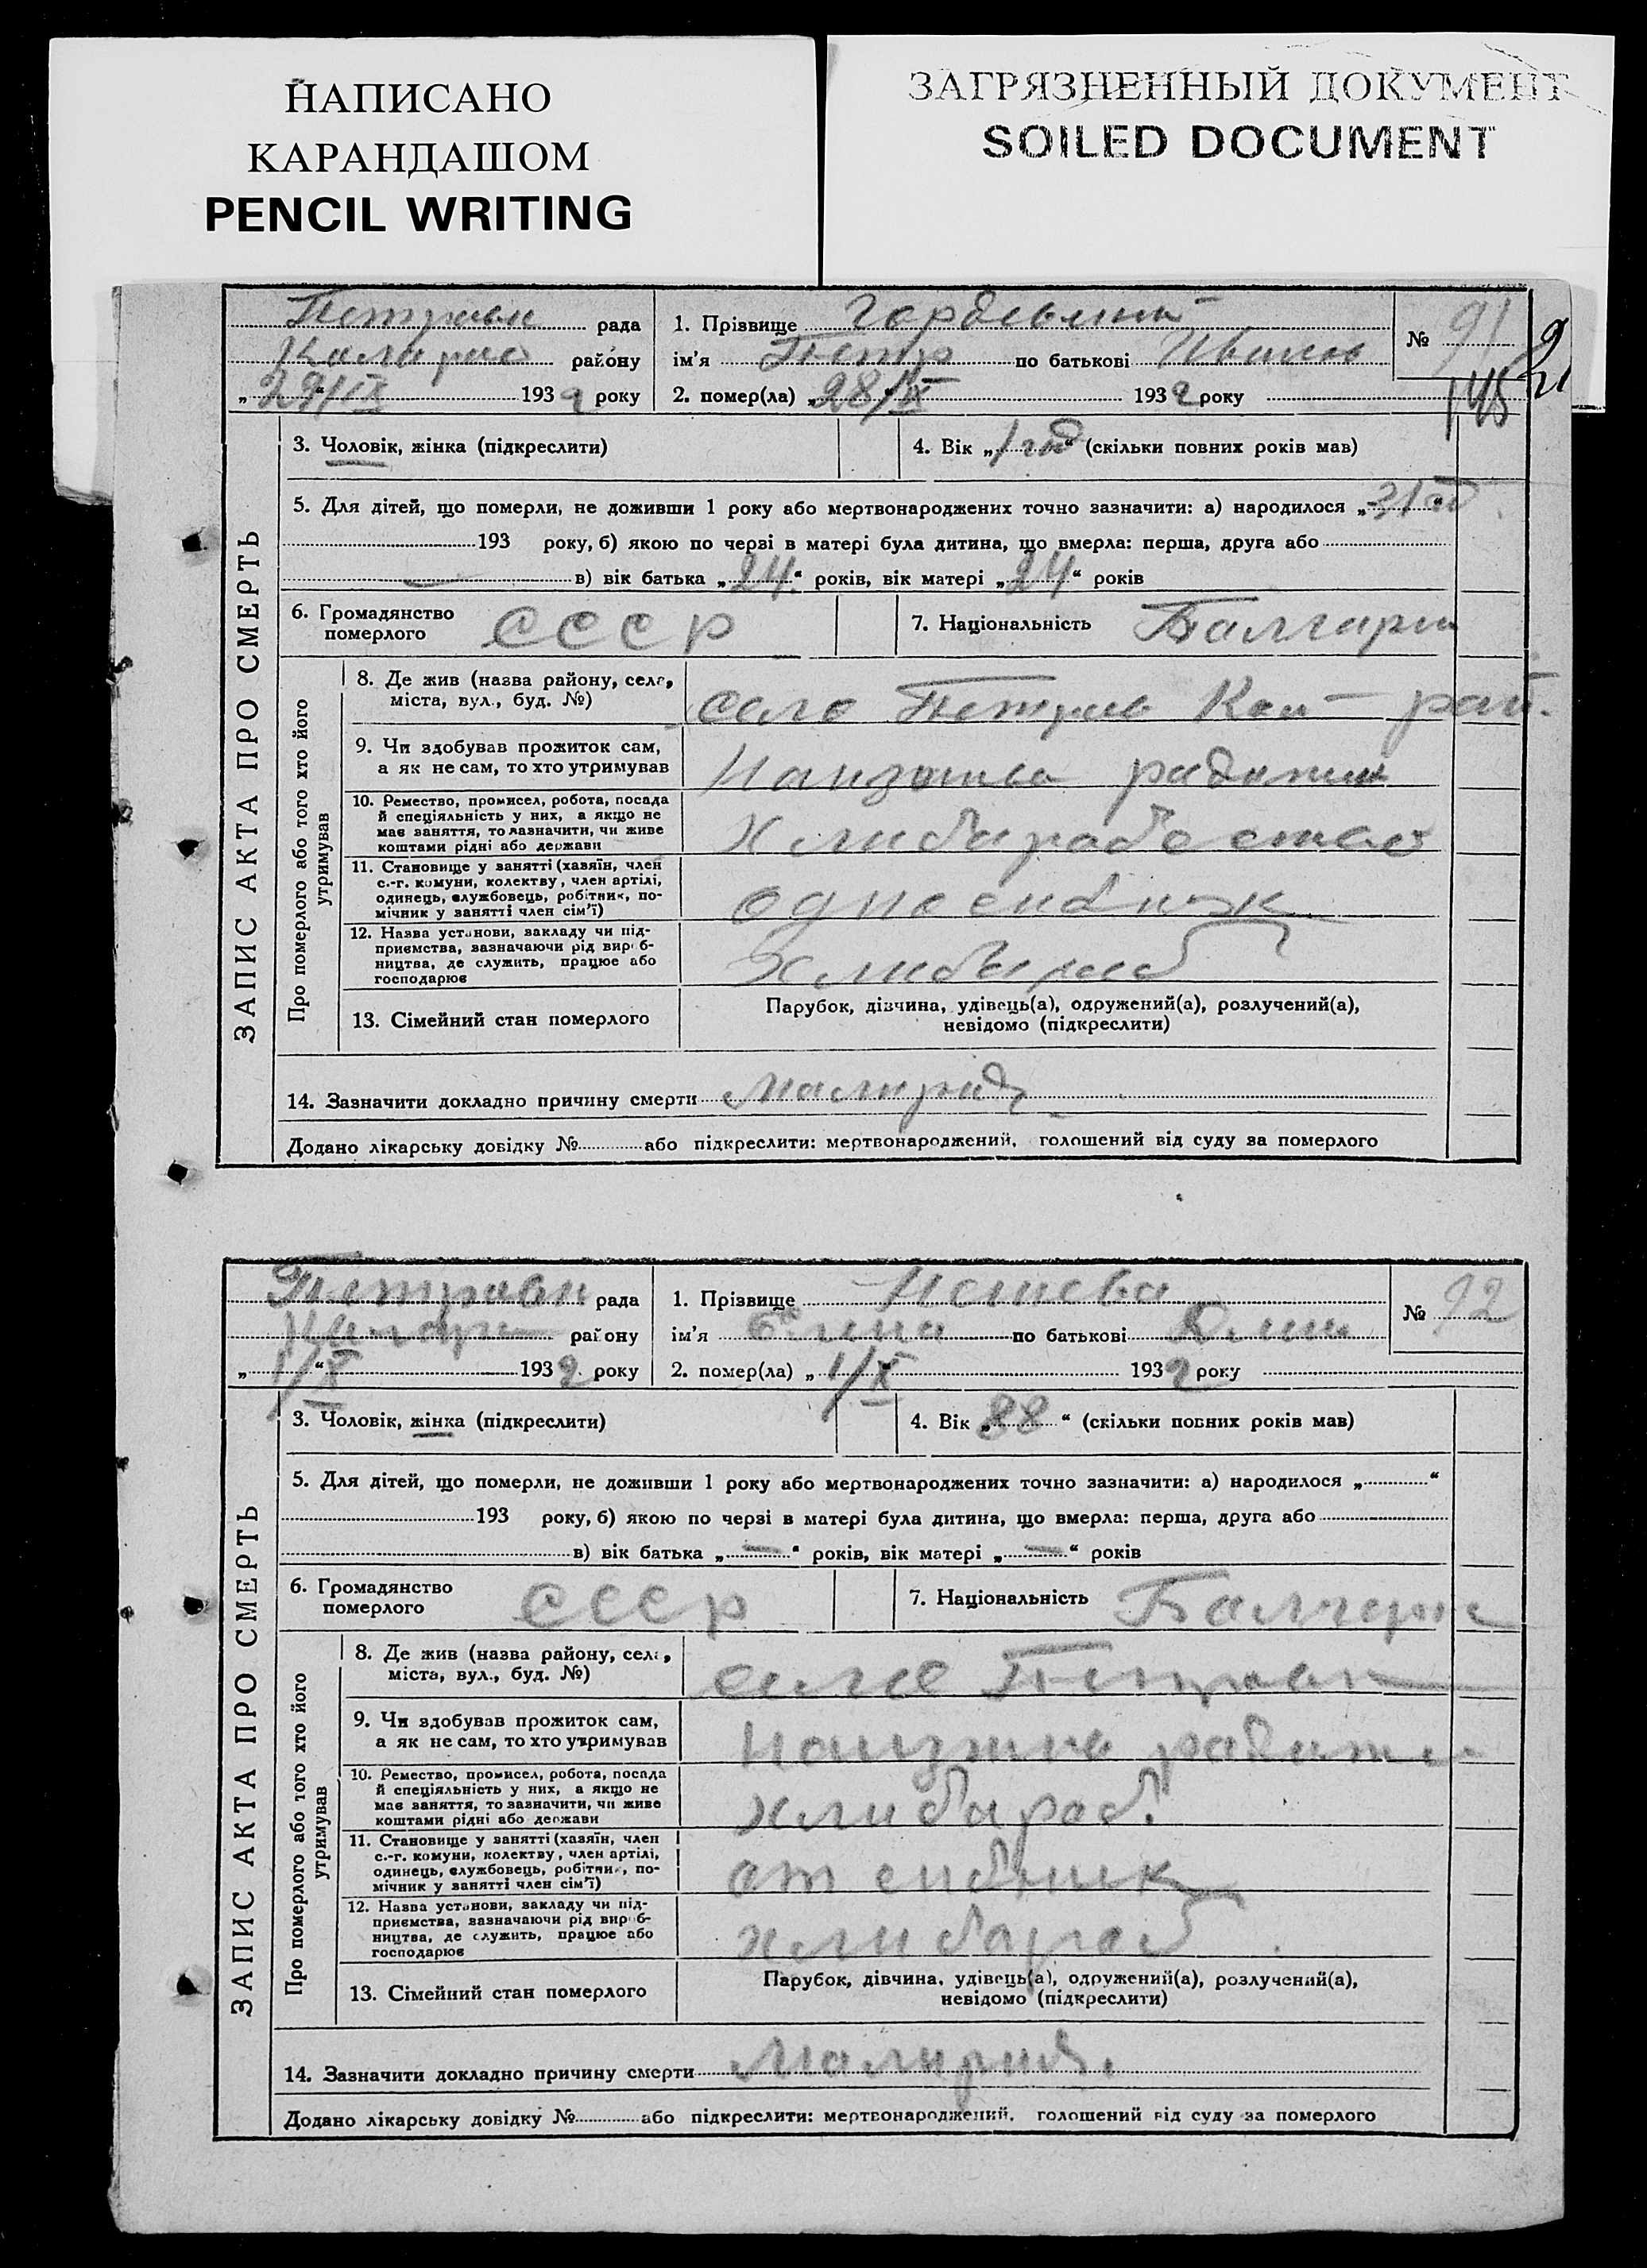 НАПИСАНО
КАРАНДАШОМ
PENCIL WRITING
ЗАГРЯЗНЕННЫЙ ДОКУМЕНТ
SOILED DOCUMENT
рада
1. Прізвище
№ 91
району
ім'я Петр по батькові
„29/IX“ 1932 року
2. помер(ла) „28/IX“ 1932 року
148
3. Чоловік, жінка (підкреслити)
4. Вік „1 год“ (скільки повних років мав)
5. Для дітей, що померли, не доживши 1 року або мертвонароджених точно зазначити: а) народилося „31“
193 року, б) якою по черзі в матері була дитина, що вмерла: перша, друга або
в) вік батька „24“ років, вік матері „24“ років
6. Громадянство померлого СССР
7. Національність Балгарин
ЗАПИС АКТА ПРО СМЕРТЬ
Про померлого або того хто його утримував
8. Де жив (назва району, села,
міста, вул., буд. №)
село Петрив Кол- рай.
9. Чи здобував прожиток сам,
а як не сам, то хто утримував
10. Ремество, промисел, робота, посада
й спеціяльність у них, а якщо не
має заняття, то зазначити, чи живе
коштами рідні або держави
11. Становище у занятті (хазяїн, член
с.-г. комуни, колективу, член артілі,
одинець, службовець, робітник, по-
мічник у занятті член сім'ї)
12. Назва установи, закладу чи під-
приємства, зазначаючи рід вироб-
ництва, де служить, працює або
господарює
13. Сімейний стан померлого
Парубок, дівчина, удівець(а), одружений(а), розлучений(а),
невідомо (підкреслити)
14. Зазначити докладно причину смерти
Додано лікарську довідку № або підкреслити: мертвонароджений, голошений від суду за померлого
рада
1. Прізвище
№ 92
району
ім'я по батькові
„1/X“ 1932 року
2. помер(ла) „1/X 1932 року
3. Чоловік, жінка (підкреслити)
4. Вік „88“ (скільки повних років мав)
5. Для дітей, що померли, не доживши 1 року або мертвонароджених точно зазначити: а) народилося „ “
193 року, б) якою по черзі в матері була дитина, що вмерла: перша, друга або
в) вік батька „—“ років, вік матері „—“ років
6. Громадянство померлого СССР
7. Національність
ЗАПИС АКТА ПРО СМЕРТЬ
Про померлого або того хто його утримував
8. Де жив (назва району, села,
міста, вул., буд. №)
9. Чи здобував прожиток сам,
а як не сам, то хто утримував
10. Ремество, промисел, робота, посада
й спеціяльність у них, а якщо не
має заняття, то зазначити, чи живе
коштами рідні або держави
хлибароб.
11. Становище у занятті (хазяїн, член
с.-г. комуни, колективу, член артілі,
одинець, службовець, робітник, по-
мічник у занятті член сім'ї)
12. Назва установи, закладу чи під-
приємства, зазначаючи рід вироб-
ництва, де служить, працює або
господарює
хлибароб
13. Сімейний стан померлого
Парубок, дівчина, удівець(а), одружений(а), розлучений(а),
невідомо (підкреслити)
14. Зазначити докладно причину смерти
Додано лікарську довідку № або підкреслити: мертвонароджений, голошений від суду за померлого